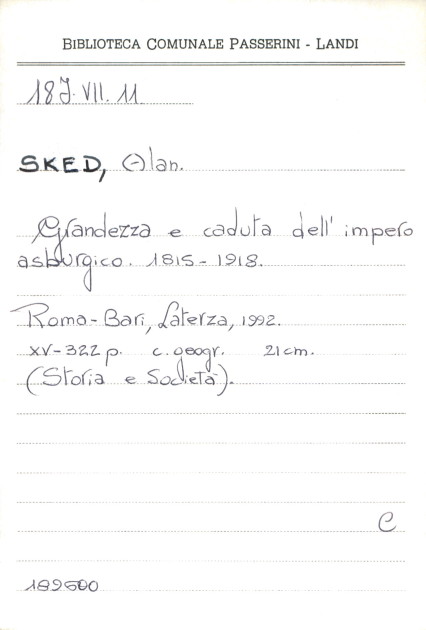 BIBLIOTECA COMUNALE PASSERINI - LANDI
18 J. VII. 11
SKED, Alan.
Grandezza e caduta dell'impero
asburgico. 1815-1918.
Roma-Bari, Laterza, 1992.
XV-322 p. c. geogr. 21 cm.
(Storia e Società).
C